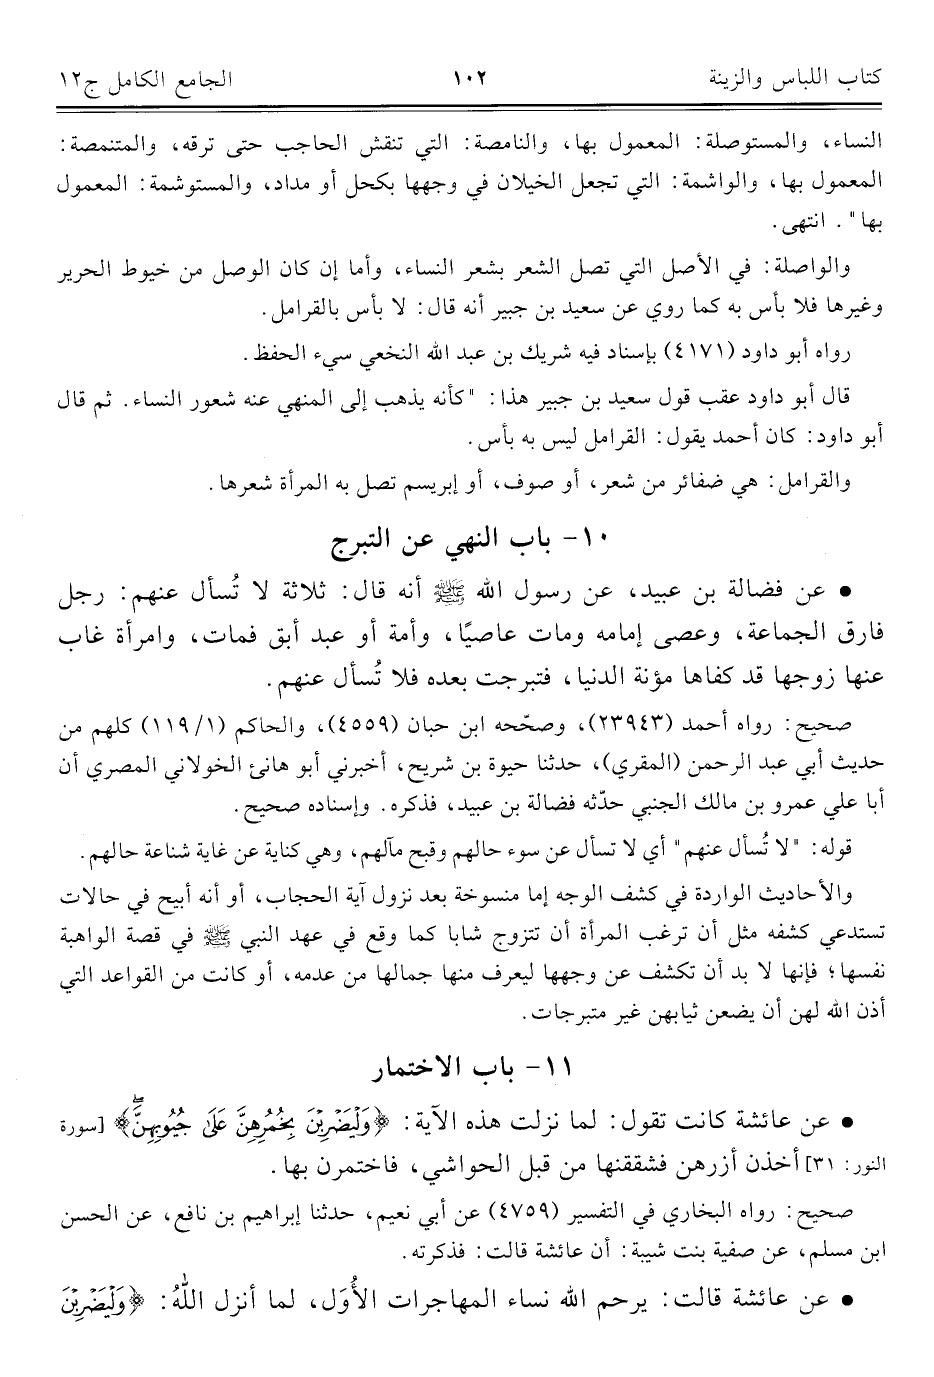 كتاب اللباس والزينة ١٠٢ الجامع الكامل ج١٢
النساء، والمستوصلة: المعمول بها، والنامصة: التي تنقش الحاجب حتى ترقه، والمتنمصة:
المعمول بها، والواشمة: التي تجعل الخيلان في وجهها بكحل أو مداد، والمستوشمة: المعمول
بها". انتهى.
والواصلة: في الأصل التي تصل الشعر بشعر النساء، وأما إن كان الوصل من خيوط الحرير
وغيرها فلا بأس به كما روي عن سعيد بن جبير أنه قال: لا بأس بالقرامل.
رواه أبو داود (٤١٧١) بإسناد فيه شريك بن عبد الله النخعي سيء الحفظ.
قال أبو داود عقب قول سعيد بن جبير هذا: "كأنه يذهب إلى المنهي عنه شعور النساء. ثم قال
أبو داود: كان أحمد يقول: القرامل ليس به بأس.
والقرامل: هي ضفائر من شعر، أو صوف، أو إبريسم تصل به المرأة شعرها.
١٠- باب النهي عن التبرج
• عن فضالة بن عبيد، عن رسول الله ﷺ أنه قال: ثلاثة لا تُسأل عنهم: رجل
فارق الجماعة، وعصى إمامه ومات عاصيًا، وأمة أو عبد أبق فمات، وامرأة غاب
عنها زوجها قد كفاها مؤنة الدنيا، فتبرجت بعده فلا تُسأل عنهم.
صحيح: رواه أحمد (٢٣٩٤٣)، وصحّحه ابن حبان (٤٥٥٩)، والحاكم (١/ ١١٩) كلهم من
حديث أبي عبد الرحمن (المقري)، حدثنا حيوة بن شريح، أخبرني أبو هانئ الخولاني المصري أن
أبا علي عمرو بن مالك الجنبي حدّثه فضالة بن عبيد، فذكره. وإسناده صحيح.
قوله: "لا تُسأل عنهم" أي لا تسأل عن سوء حالهم وقبح مآلهم، وهي كناية عن غاية شناعة حالهم.
والأحاديث الواردة في كشف الوجه إما منسوخة بعد نزول آية الحجاب، أو أنه أبيح في حالات
تستدعي كشفه مثل أن ترغب المرأة أن تتزوج شابا كما وقع في عهد النبي ﷺ في قصة الواهبة
نفسها؛ فإنها لا بد أن تكشف عن وجهها ليعرف منها جمالها من عدمه، أو كانت من القواعد التي
أذن الله لهن أن يضعن ثيابهن غير متبرجات.
١١- باب الاختمار
• عن عائشة كانت تقول: لما نزلت هذه الآية: ﴿وَلْيَضْرِبْنَ بِخُمُرِهِنَّ عَلَىٰ جُيُوبِهِنَّۖ﴾ [سورة
النور: ٣١] أخذن أزرهن فشققنها من قبل الحواشي، فاختمرن بها.
صحيح: رواه البخاري في التفسير (٤٧٥٩) عن أبي نعيم، حدثنا إبراهيم بن نافع، عن الحسن
ابن مسلم، عن صفية بنت شيبة: أن عائشة قالت: فذكرته.
• عن عائشة قالت: يرحم الله نساء المهاجرات الأُوَل، لما أنزل اللّٰهُ: ﴿وَلْيَضْرِبْنَ